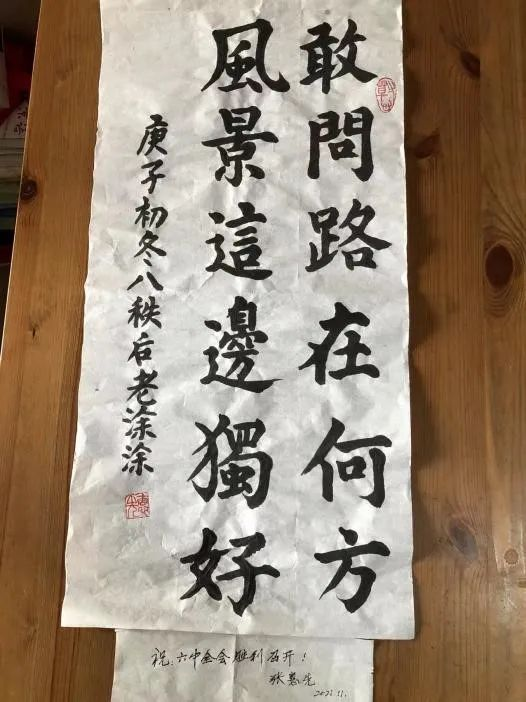 敢問路在何方
風景這邊獨好
庚子初冬八秩后老涂涂
祝:六中全会胜利召开!
张惠先
2021.11.